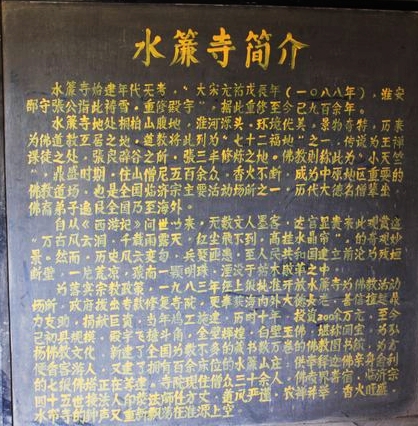 水簾寺简介
水簾寺始建年代无考，“大宋元祐戊辰年（一〇八八年），淮安
郡守张公指此祷雪，重修殿宇”，据此重修至今已九百余年。
水簾寺地处桐柏山腹地，淮河源头，环境优美，景物奇特，历来
为佛道教互居之地，道教将此列为“七十二福地”之一，传说为王禅
课徒之处，张良辟谷之所，张三丰修炼之地。佛教则称此为“小天竺
”，鼎盛时期，住山僧尼五百余众，香火不断，成为中原地区重要的
佛教道场，也是全国临济宗主要活动场所之一，历代大德名僧辈出，
佛裔弟子遍及全国乃至海外。
自从《西游记》问世以来，无数文人墨客，达官显贵来此观赏这
“万古风云洞，千载雨露天，红尘飞不到，高挂水晶帘”，的奇观妙
景。然而，历史风云变幻，兵燹匪患，至人民共和国建立前沦为残垣
断壁，一片荒凉，乘南一颗明珠，湮没于枯木
为落实宗教政策，一九八三年经上级批准开放水簾寺为佛教活动
场所，政府拨出专款修复寺院，更承海内外大德长老、善信檀越鼎
力支助，捐献巨资，当年鸠工施建，历时十年，投资200余万元，至今
已初具规模，殿宇飞檐斗角，金壁辉煌，白壁玉佛，
扬佛教文化，新建了全国为数不多的藏书数万卷的佛教图书馆，为方
便香客游人，又建了拥有百余床位的水簾山庄，供
的七级佛塔正在筹建，寺院现住僧众三十余人，
四十五世接法人印 法师任方丈，道风严谨，农禅并举，香火旺盛，
水帘寺的钟声又重新飘荡在淮源上空